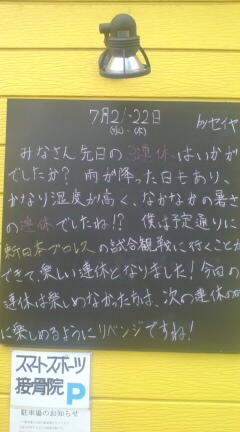 7月21・22日 byセイヤ
(火)・(水)
みなさん先日の3連休はいかが
でしたか？ 雨が降った日もあり、
かなり湿度が高く、なかなかの暑さ
の連休でしたね!? 僕は予定通りに
新日本プロレスの試合観戦に行くことが
できて、楽しい連休となりました！今回の
連休は楽しめなかった方は、次の連休の時
に楽しめるようにリベンジですね！
スマートスポーツ
接骨院 P
駐車場のお知らせ